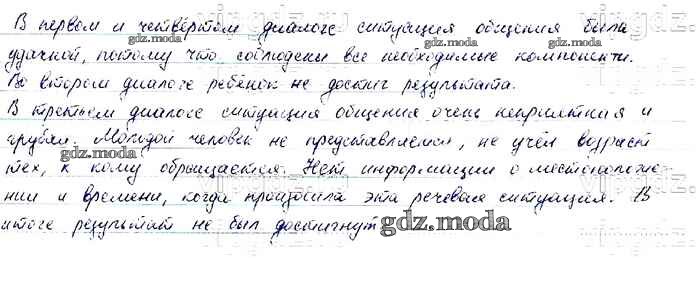 В первом и четвёртом диалоге ситуация общения была
удачной, потому что соблюдены все необходимые компоненты.
gdz.moda
Во втором диалоге ребёнок не достиг результата.
gdz.moda
В третьем диалоге ситуация общения очень неприятная и
грубая. Молодой человек не представляется, не учёл возраст
gdz.moda
тех, к кому обращается. Нет информации о местоположе-
gdz.moda
нии и времени, когда произошла эта речевая ситуация. В
итоге результат не был достигнут
gdz.moda